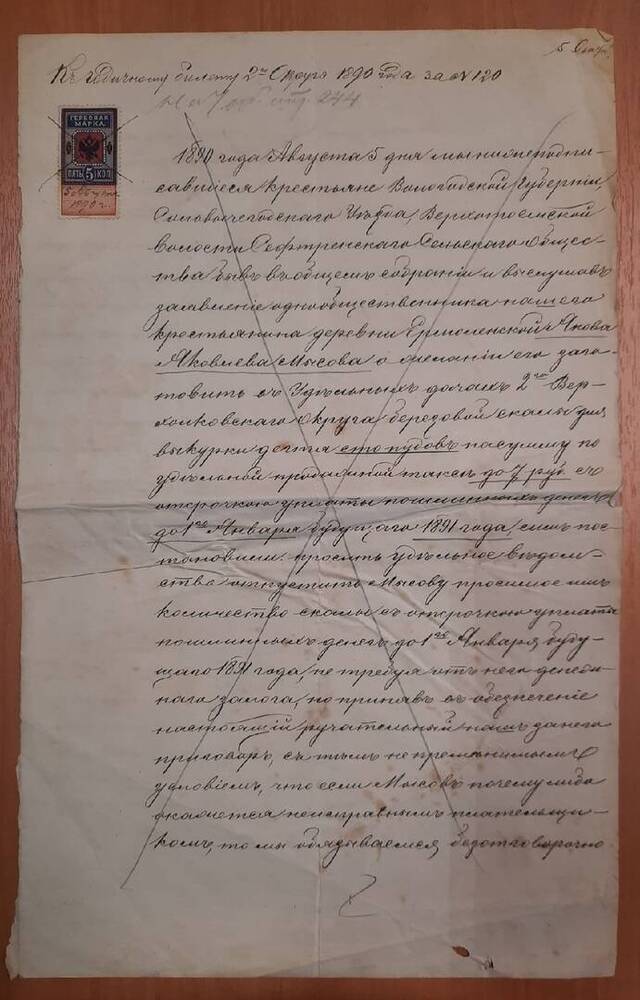 Къ годичному билету 2го Округа 1890 года за № 120
ГЕРБОВАЯ
МАРКА
ПЯТЬ 5 КОП.
5 Августа
1890 г.
1890 года Августа 5 дня мы нижеподпи-
савшіеся крестьяне Вологодской Губерніи,
Сольвычегодскаго Уѣзда, Верхотоемской
волости Сефтренскаго Сельскаго Общес-
тва бывъ въ общемъ собраніи и выслушавъ
заявленіе однообщественника нашего
крестьянина деревни Ермолинской Якова
Яковлева Мысова о желаніи его заго-
товить въ Удѣльныхъ дачахъ 2го Вер-
холковскаго Округа березовой скалы для
выкурки дегтя сто пудовъ на сумму по
удѣльной продажной таксѣ до 7 руб съ
отсрочкою уплаты пошлинныхъ денегъ
до 1го Января будущаго 1891 года, симъ пос-
тановили: просить удѣльное вѣдом-
ство отпустить Мысову просимое имъ
количество скалы съ отсрочкою уплаты
пошлинныхъ денегъ до 1го Января буду-
щаго 1891 года, не требуя отъ него денеж-
наго залога, но принявъ въ обезпеченіе
настоящій ручательный нашъ за него
приговоръ, съ тѣмъ непремѣннымъ
условіемъ, что если Мысовъ почему либо
окажется неисправнымъ плательщи-
комъ, то мы обязываемся, безотговорочно